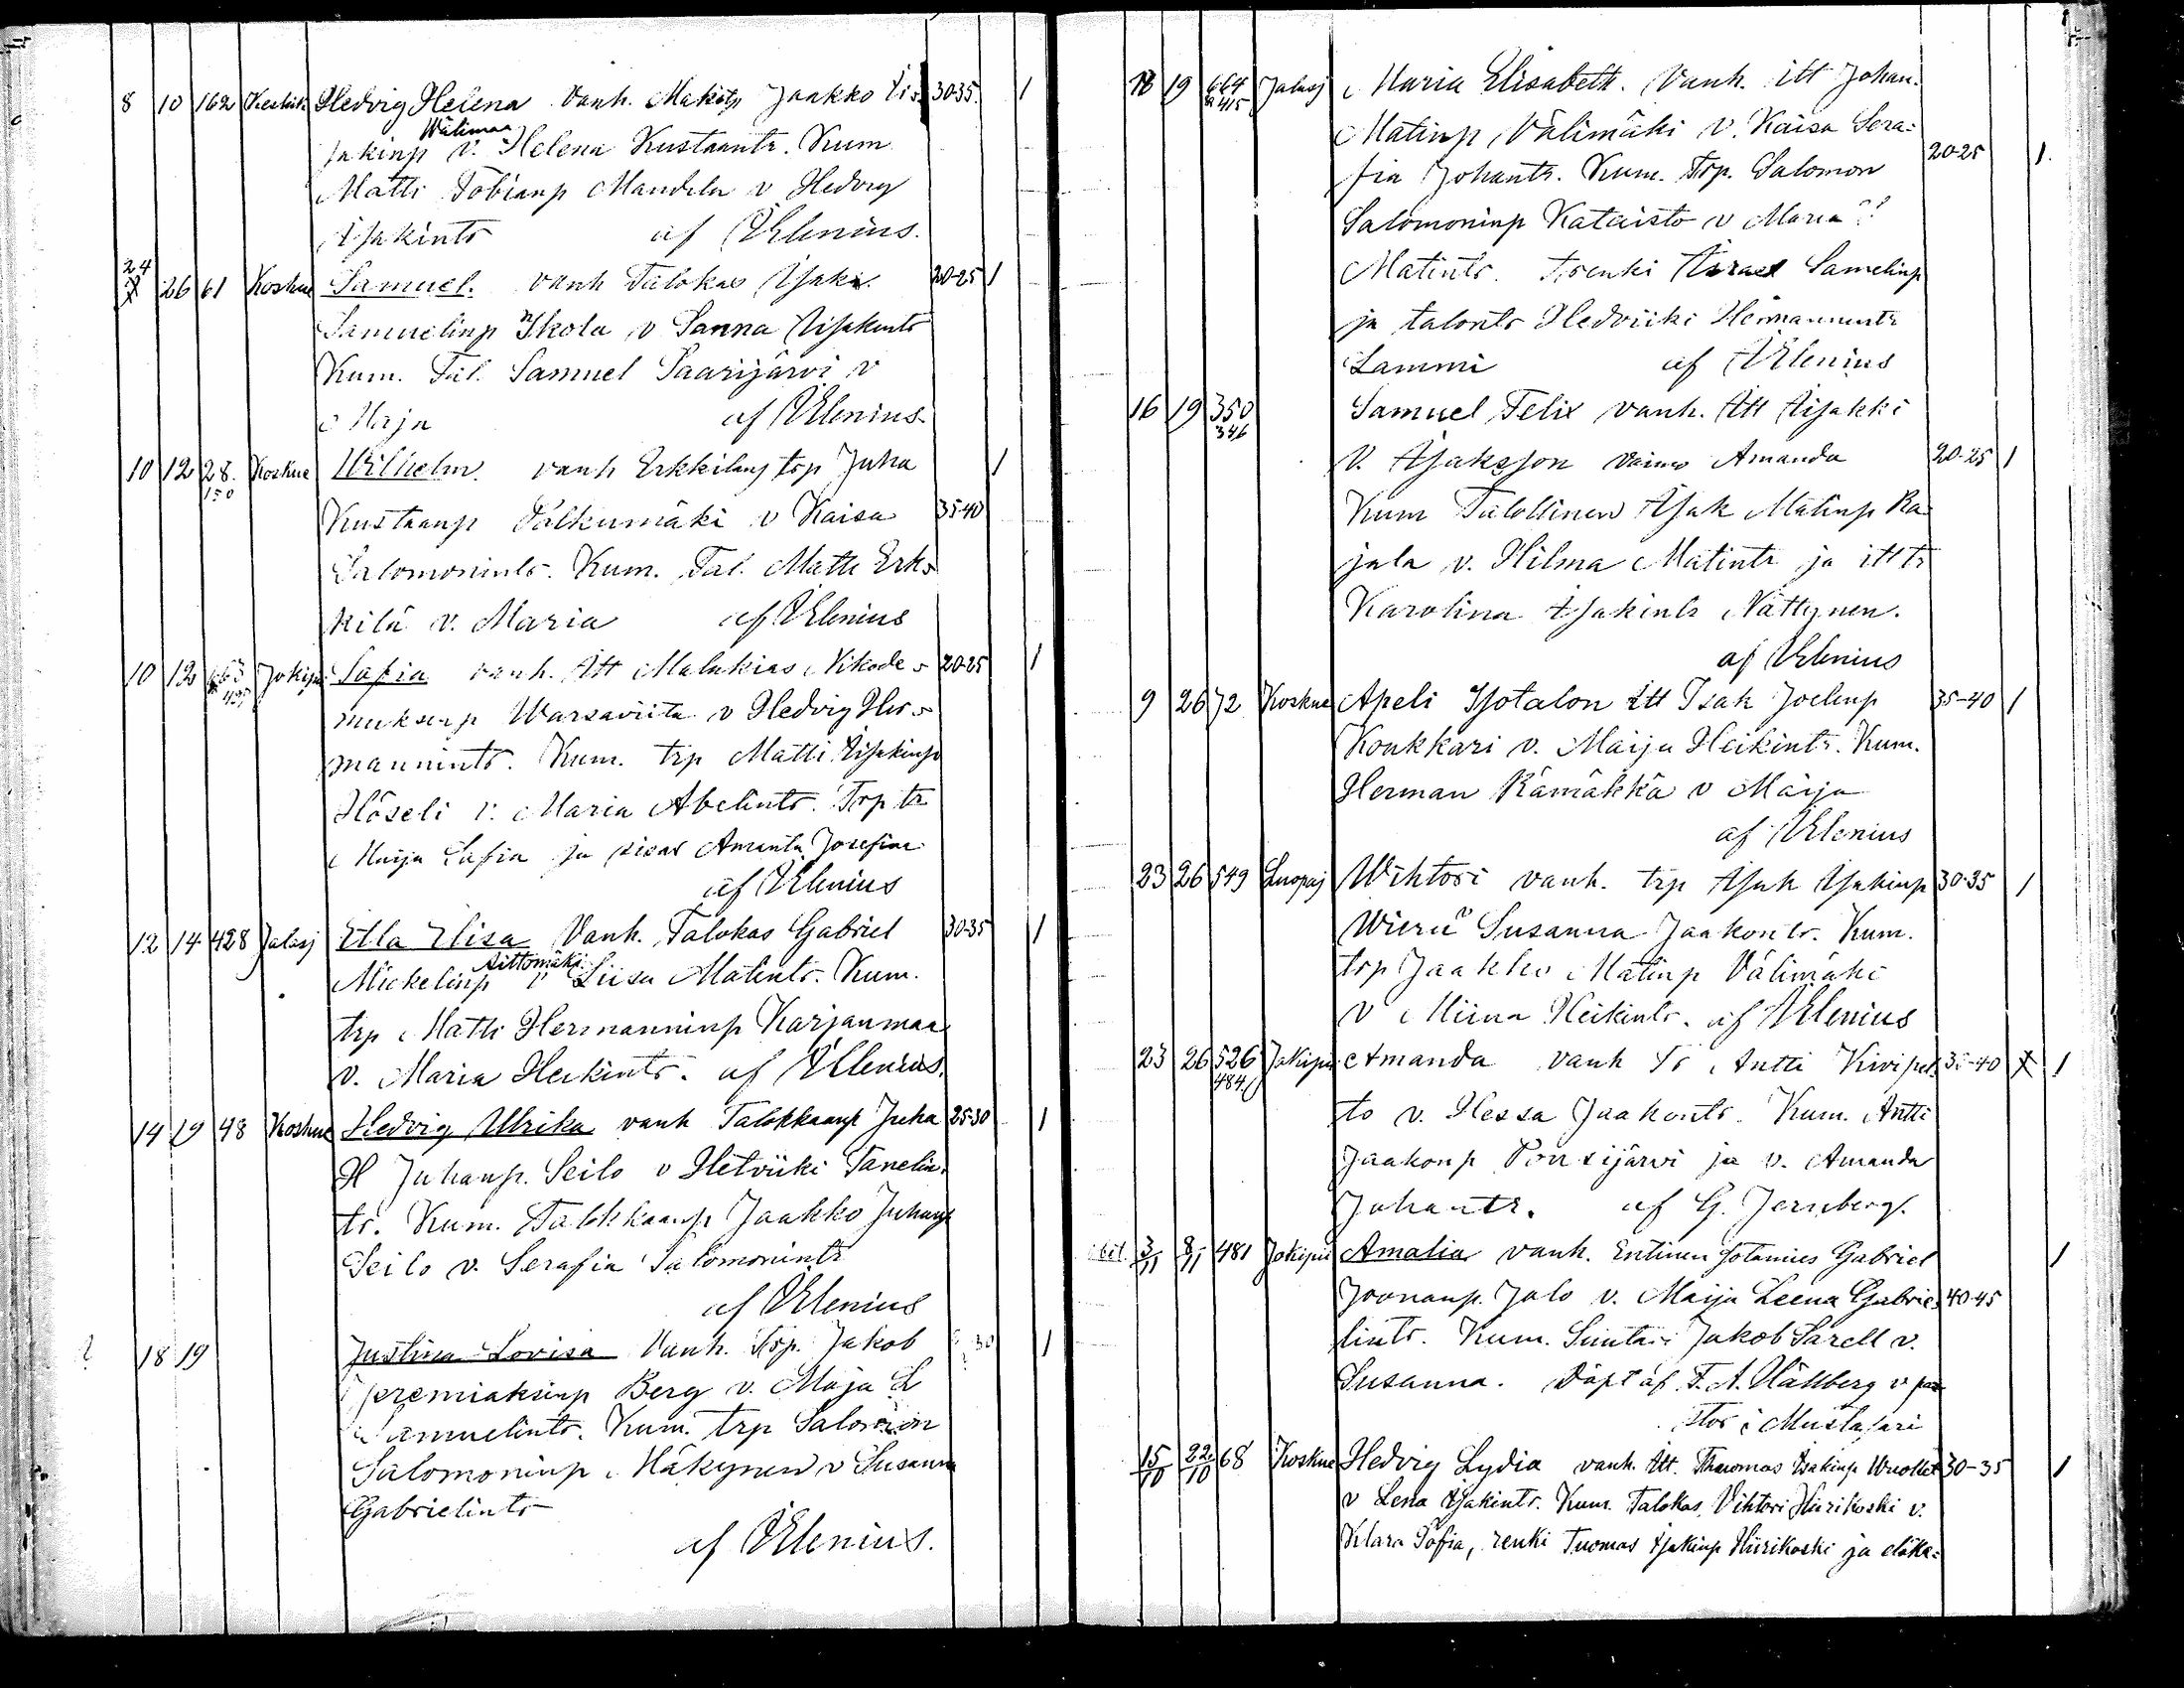 8 10 162 Hedvig Helena vanh. Mäkitp Jaakko Iis- 30-35. 1
Wälimaa
jakinp v. Helena Kustaantr. Kum
Matti Tobianp Mandelin v Hedvig
Isakintr af VElenius.
24 26 61 Koskue Samuel. vanh Talokas Isaki 20-25 1
Samuelinp Yskola v Sanna Iisakintr
Kum. Tal. Samuel Saarijärvi v
Maja af VElenius.
10 12 28. Koskue Wilhelm. vanh Erkkilan trp Juha 1
150
Kustaanp Pälkumäki v Kaisa 35-40
Salomonintr. Kum. Tal. Matti Erk-
kilä v. Maria af VElenius
10 12 Jokipii Safia vanh. Itt Malakias Nikode- 20-25 1
muksenp Warsaviita v Hedvig Her-
mannintr. Kum. trp Matti Iisakinp
Höseli v. Maria Abelintr. Trp tr
Maija Safia ja sisar Amanta Josefina
af VElenius
12 14 428 Jalasj Ella Elisa Vanh. Talokas Gabriel 30-35 1
Aittomäki
Mickelinp v Liisa Matintr. Kum.
trp Matti Hermanninp Karjanmaa
v. Maria Heikintr. af VElenius.
14 19 48 Koskue Hedvig Ulrika vanh Talokkaanp Juha 25-30 1
H Juhanp. Seilo v Hetviiki Tanelin-
tr. Kum. Talokkaanp Jaakko Juhanp
Seilo v. Serafia Salomonintr
af VElenius
? 18 19 Justina Lovisa Vanh. Trp. Jakob 30 1
Jeremiaksenp Berg v. Maja L
Samuelintr. Kum. trp Salomon
Salomoninp Mäkynen v Susanna
Gabrielintr
af VElenius.
18 19 664 Jalasj Maria Elisabeth. Vanh. itt Johan.
415
Matinp Välimäki v. Kaisa Sera-
fia Johantr. Kum. Trp. Salomon 20-25 1.
Salomoninp Kataisto v Maria
Matintr. Trenki Israel Samelinp
ja talontr Hedviiki Hermannintr
Lammi af VElenius
16 19 350 Samuel Felix vanh. Itt Iisakki
346
V. Isaksson vaimo Amanda 20-25 1
Kum Talollinen Isak Matinp Ra-
jala v. Hilma Matintr ja itt tr
Karolina Isakintr Nättynen.
af VElenius
9 26 72 Koskue Apeli Isotalon itt Isak Joelinp 35-40 1
Konkkari v. Maija Heikintr. Kum.
Herman Rämäkkä v Maija
af VElenius
23 26 549 Luopaj Wihtori vanh. trp Isak Isakinp 30-35 1
Wieru v Susanna Jaakontr. Kum.
trp Jaakko Matinp Välimäki
v Miina Heikintr. af VElenius
23 26 526 Jokipii Amanda vanh Antti Kivipel- 35-40 x 1
484
to v. Hessa Jaakontr. Kum. Antti
Jaakonp Ponsijärvi ja v. Amanda
Juhantr. af G. Jernberg.
3/11 8/11 481 Jokipii Amalia vanh. Entinen sotamies Gabriel 1
Joonanp. Jalo v. Maija Leena Gabrie- 40-45
lintr. Kum. Suntari Jakob Sarell v.
Susanna. Döpt af F. A. Hällberg v pas-
tor i Mustasari
15/10 22/10 68 Koskue Hedvig Lydia vanh. Itt. Thuomas Isakinp Wuollet 30-35 1
v Lena Isakintr. Kum. Talokas Vihtori Hiirikoski v.
Klara Sofia, renki Tuomas Isakinp Hiirikoski ja eläkä-